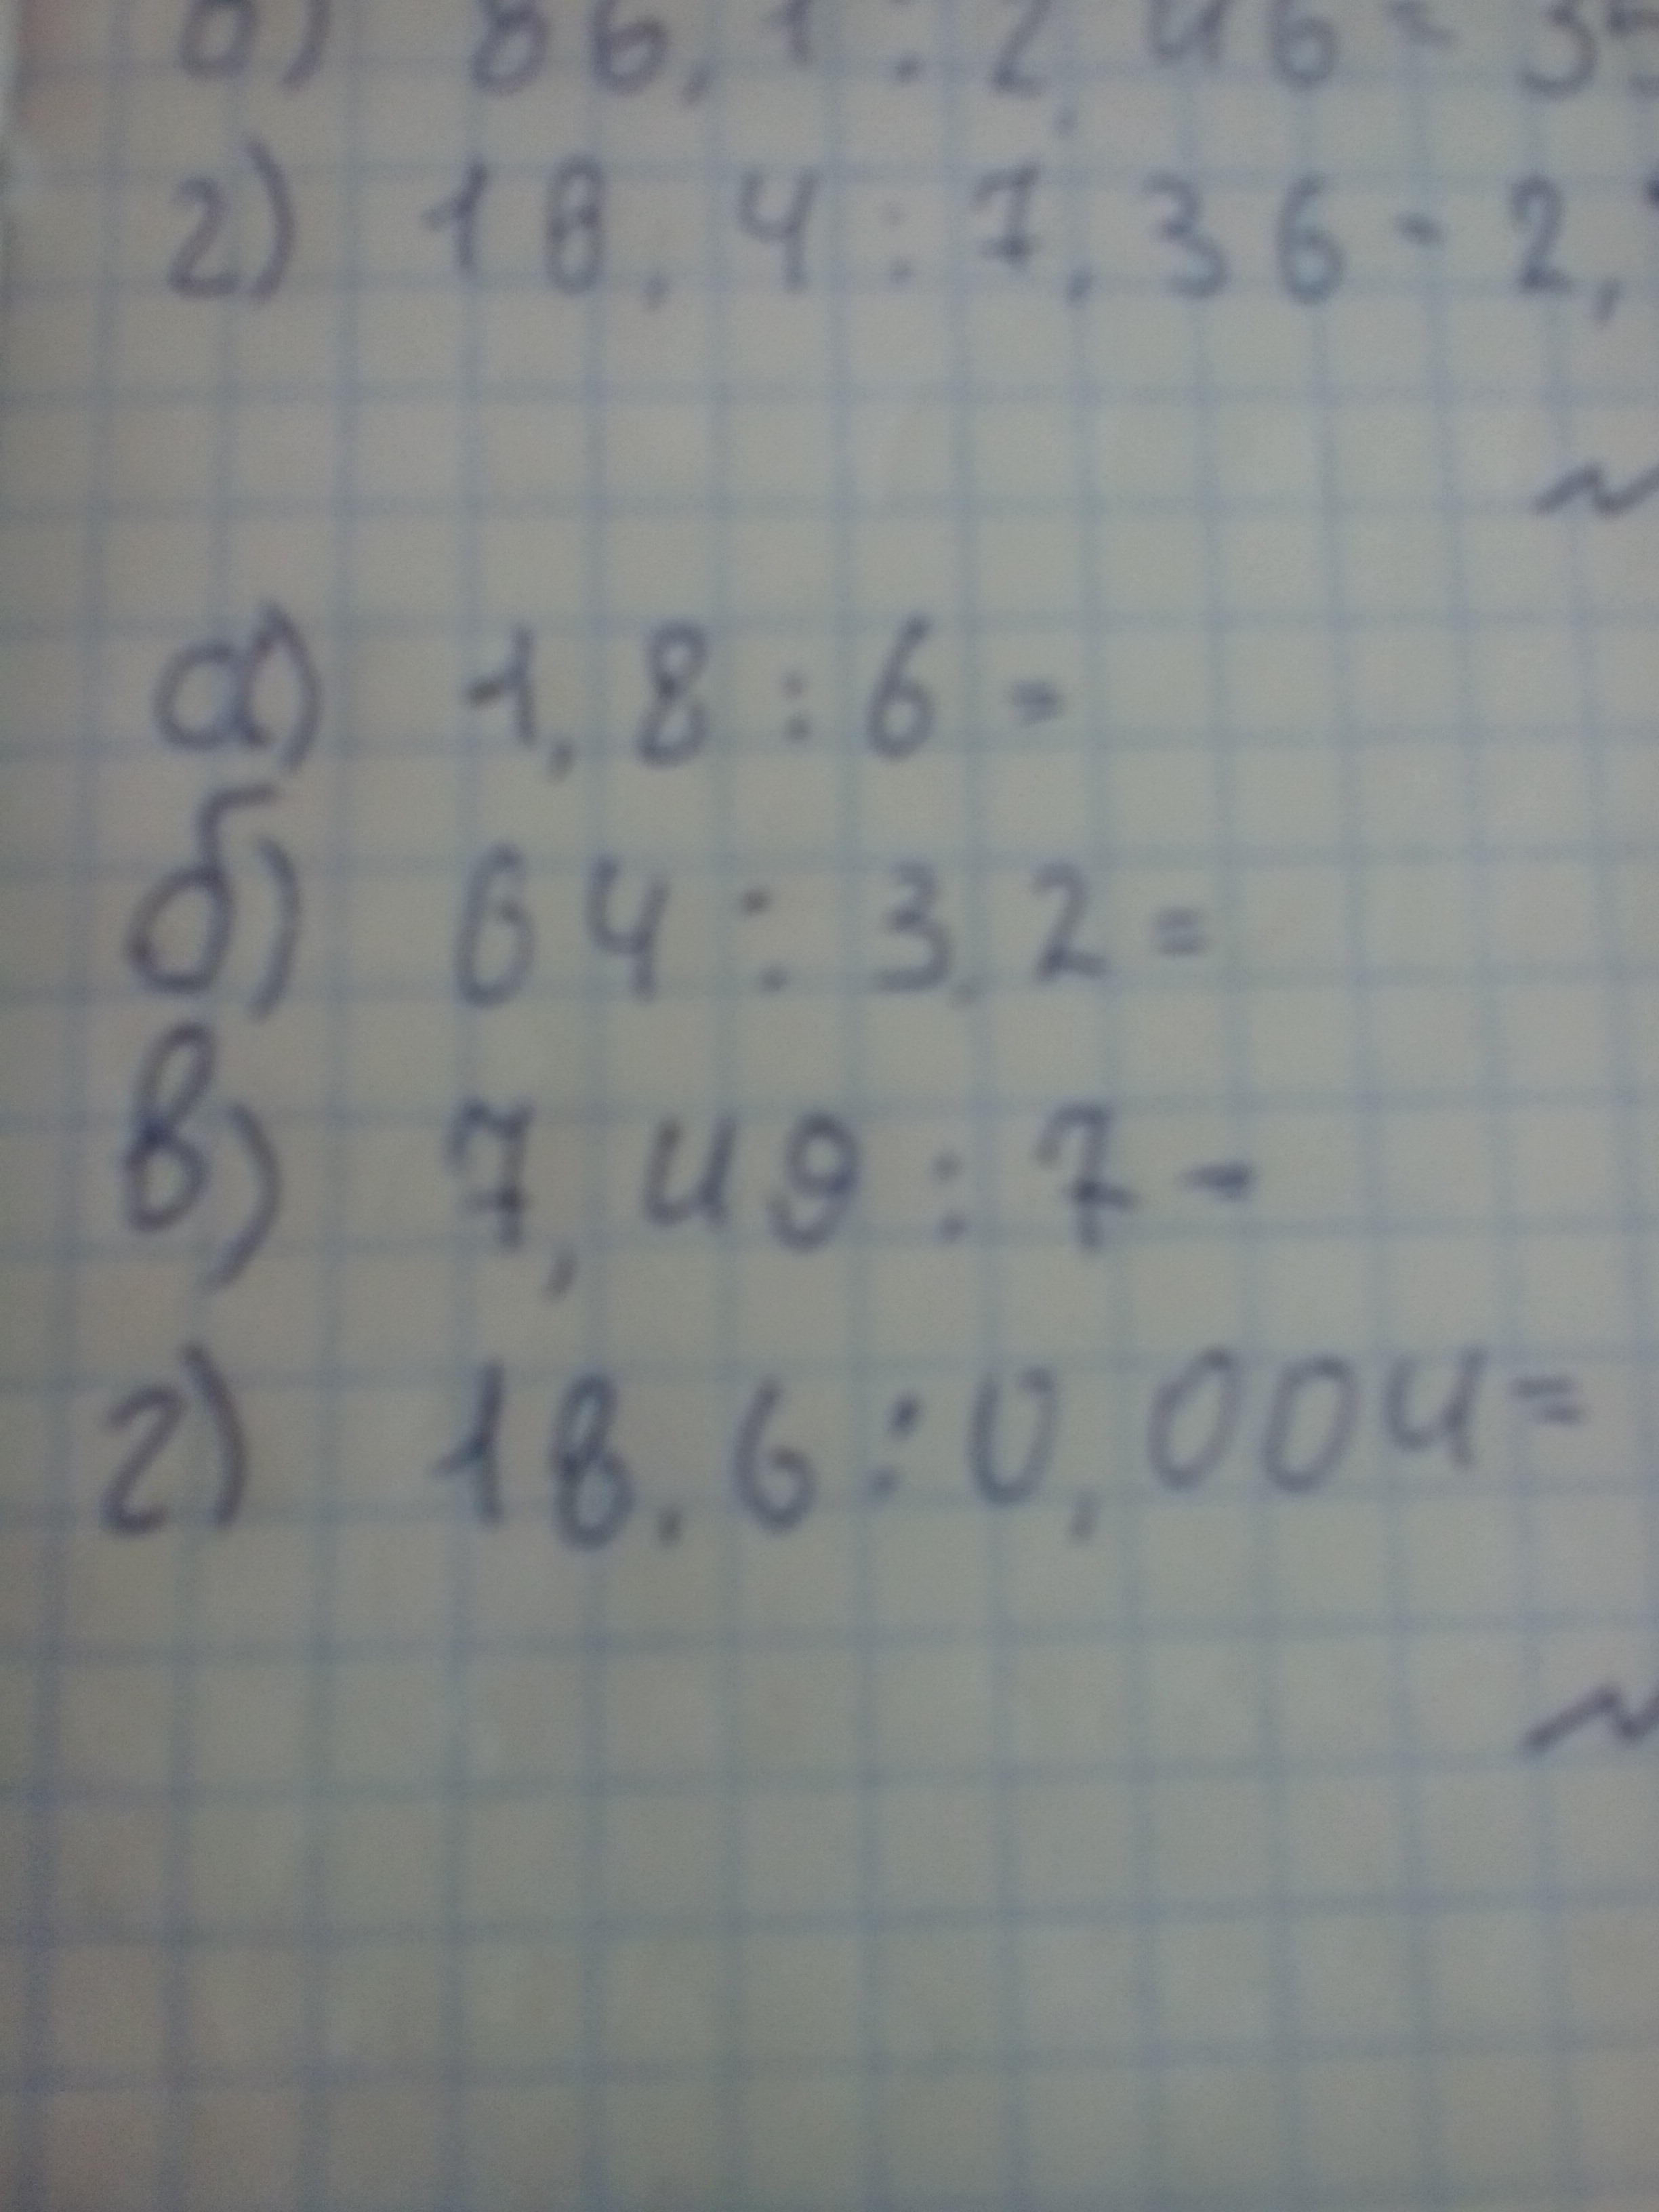 в) 86,1 : 2,46 = 35
г) 18,4 : 7,36 = 2,
а) 1,8 : 6 =
б) 64 : 3,2 =
в) 7,49 : 7 =
г) 18,6 : 0,004 =